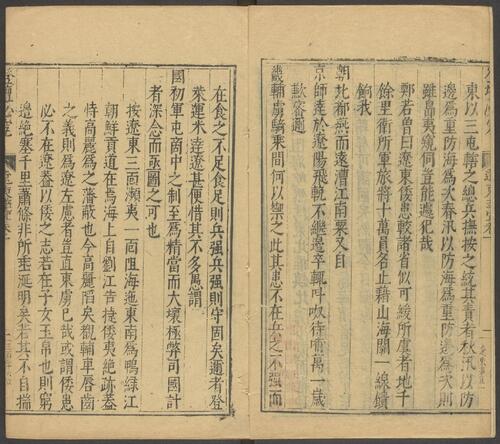 東以三屯轄之總兵撫按之統其責者秋汛以防
邊為重防海為次春汛以防海為重防邊為次則
雖晶夷窺伺豈能遽犯哉
鄭若曾曰遼東倭患較諸省似可緩所慮者地千
餘里衛所軍旅將十萬員名止藉山海關一線續
餉我
朝北都燕而遠漕江南粟又自
京師達於遼陽飛輓不繼邊卒輒呼吸待哺萬一歲
歉密邇
畿輔虜騎乘間何以禦之此其患不在兵之不強而
在食之不足食足則兵強兵強則守固矣邇者登
萊運米達遼甚便惜其不多愚謂
國初軍屯商中之制至為精當而大壞極弊司國計
者深念而亟圖之可也
按遼東三面瀕夷一面阻海迤東南為鴨綠江
朝鮮貢道在焉海上自劉江告捷倭夷絶跡蓋
恃高麗為之藩蔽也今高麗陷矣觀輔車唇齒
之義則為遼左慮者豈直東虜已哉或謂倭患
必不在遼蓋以倭之志若在子女玉帛也則窮
邊絶塞千里蕭條非所垂涎明矣若其不自揣